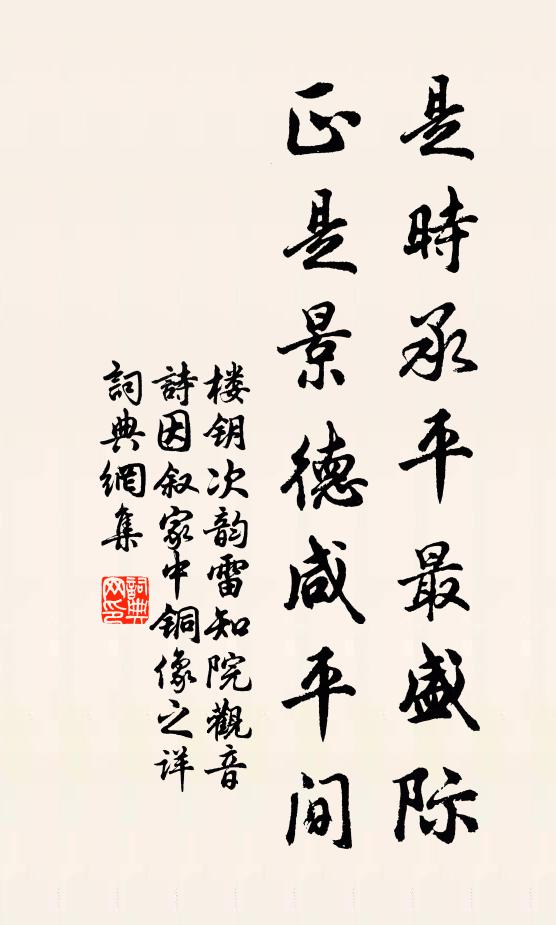 是時承平最盛际
正是景德咸平间
楼钥次韵雷知院觀音
詩因叙家中銅像之详
詞典網集
詞典網印